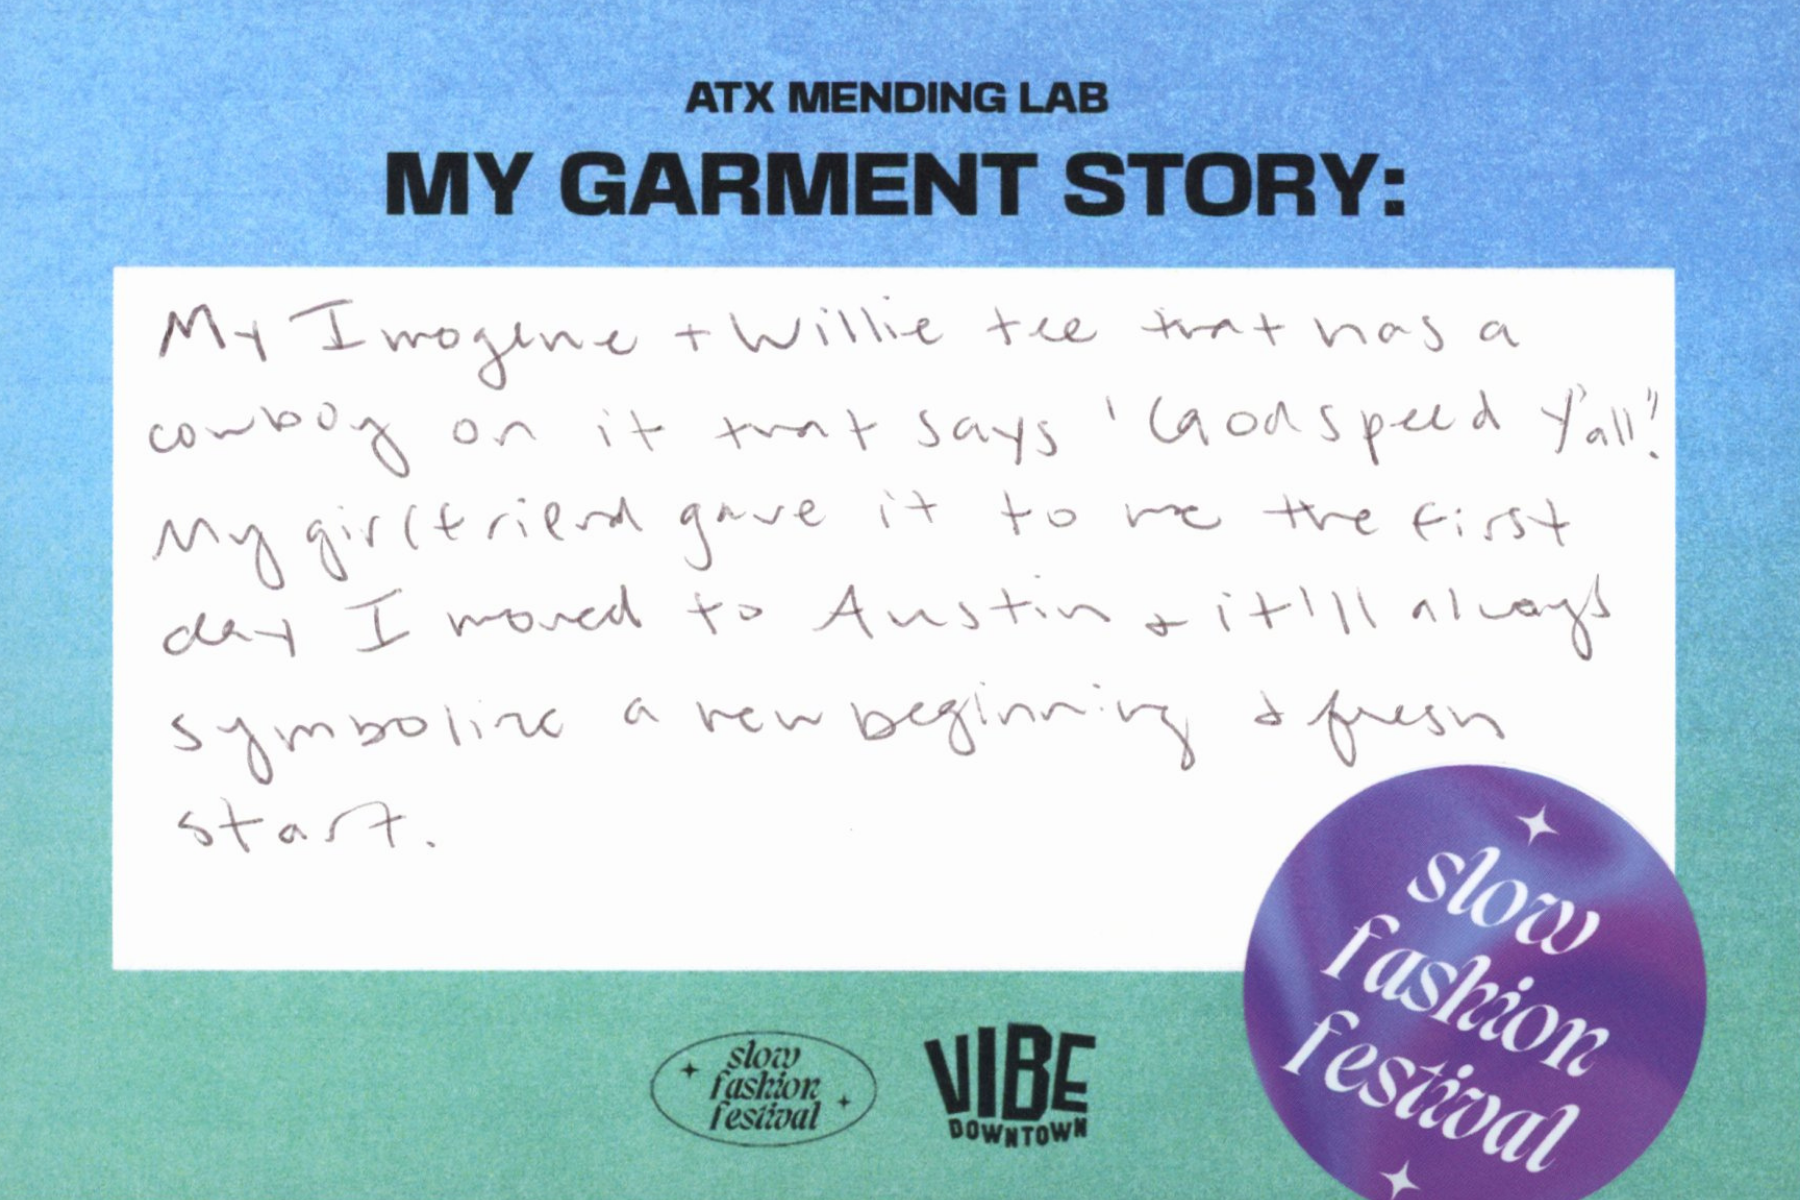 ATX MENDING LAB
MY GARMENT STORY:
My Imogene + Willie tee that has a
cowboy on it that says 'Godspeed Y'all".
My girlfriend gave it to me the first
day I moved to Austin & it'll always
symbolize a new beginning & fresh
start.
slow
fashion
festival
slow
fashion
festival
VIBE
DOWNTOWN